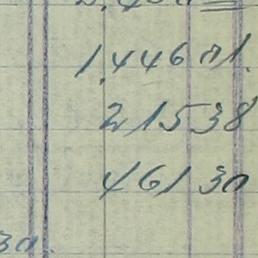 1.446 71
215 38
461 30
30